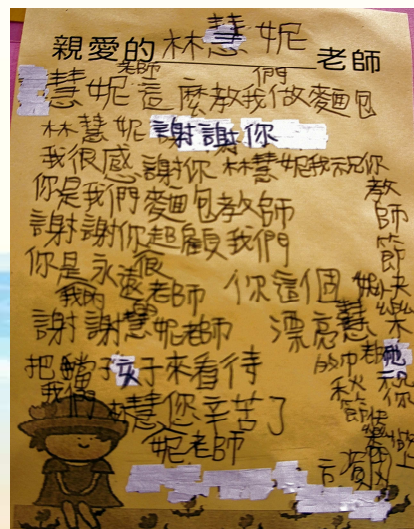 親愛的林慧妮老師
慧妮老師這麼教我們做麵包
林慧妮謝謝你
我很感謝你林慧妮我祝你
你是我們麵包教師
謝謝你超顧我們
你是永遠很
我的老師
你這個
謝謝慧妮老師
漂亮慧
把我們當孩子來看待
林慧您辛苦了
妮老師
教師節快樂
妮老師
祝你
的中秋節